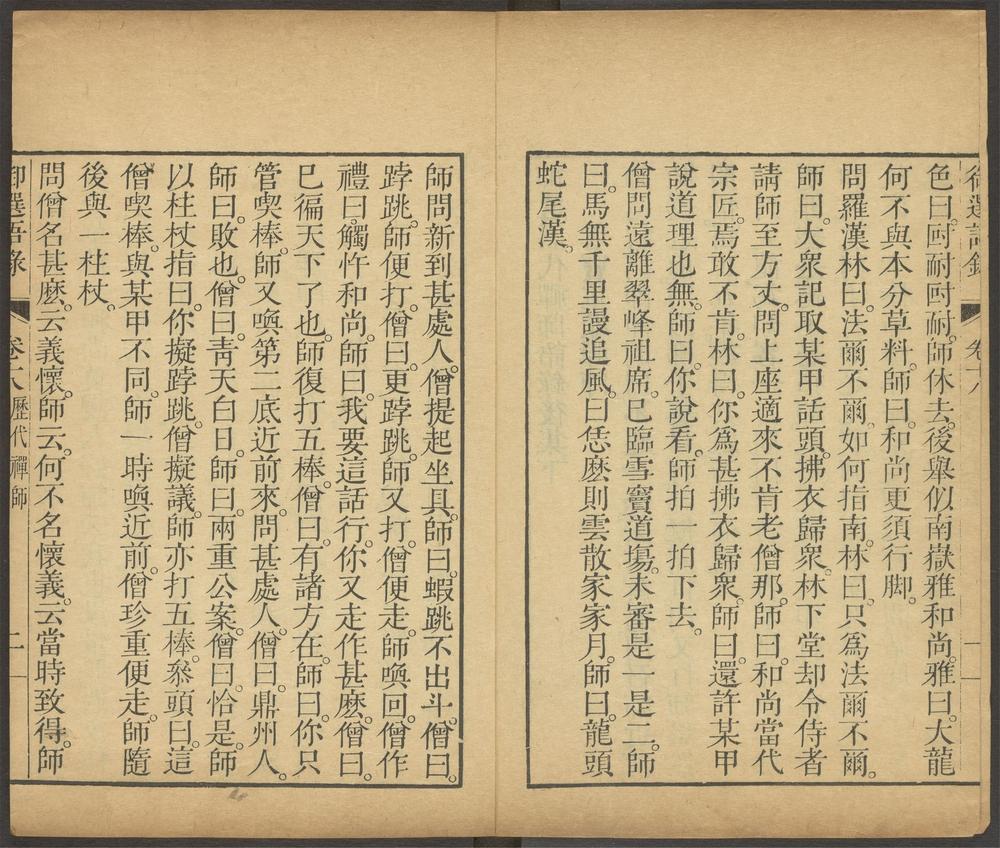 御選語錄
卷十八
一
色曰。㖃耐㖃耐。師休去。後舉似南嶽雅和尚。雅曰。大龍
何不與本分草料。師曰。和尚更須行脚。
問羅漢林曰。法爾不爾。如何指南。林曰。只爲法爾不爾。
師曰。大衆記取某甲話頭。拂衣歸衆。林下堂却令侍者
請師至方丈。問上座適來不肯老僧那。師曰。和尚當代
宗匠。焉敢不肯。林曰。你爲甚拂衣歸衆。師曰。還許某甲
說道理也無。師曰。你說看。師拍一拍下去。
僧問遠離翠峰祖席。已臨雪竇道場。未審是一是二。師
曰。馬無千里謾追風。曰恁麽則雲散家家月。師曰。龍頭
蛇尾漢。
師問新到甚處人。僧提起坐具。師曰。蝦跳不出斗。僧曰。
𨁝跳。師便打。僧曰。更𨁝跳。師又打。僧便走。師喚回。僧作
禮曰。觸忤和尚。師曰。我要這話行。你又走作甚麽。僧曰。
已徧天下了也。師復打五棒。僧曰。有諸方在。師曰。你只
管喫棒。師又喚第二底近前來。問甚處人。僧曰。鼎州人。
師曰。敗也。僧曰。靑天白日。師曰。兩重公案。僧曰。恰是。師
以柱杖指曰。你擬𨁝跳。僧擬議。師亦打五棒。叅頭曰。這
僧喫棒。與某甲不同。師一時喚近前。僧珍重便走。師隨
後與一柱杖。
問僧名甚麽。云義懷。師云。何不名懷義。云當時致得。師
御選語錄
卷十八歷代禪師
二